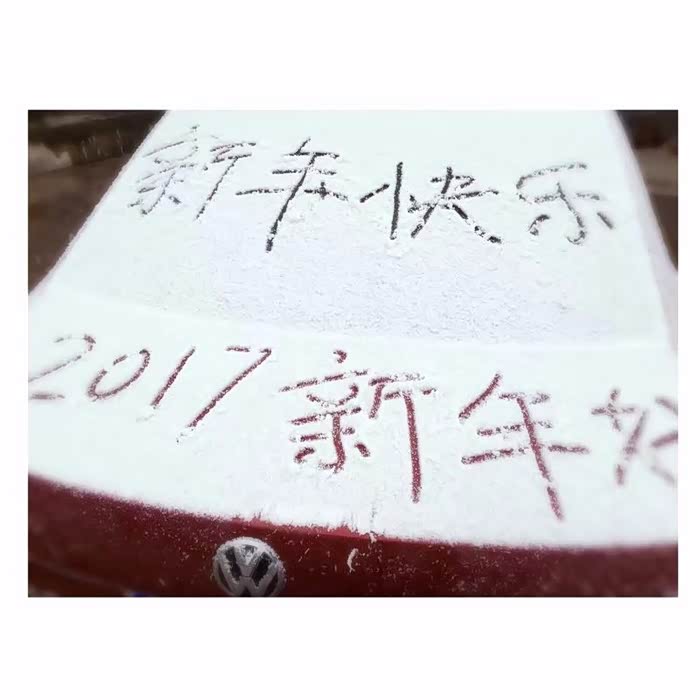 新年快乐
2017 新年